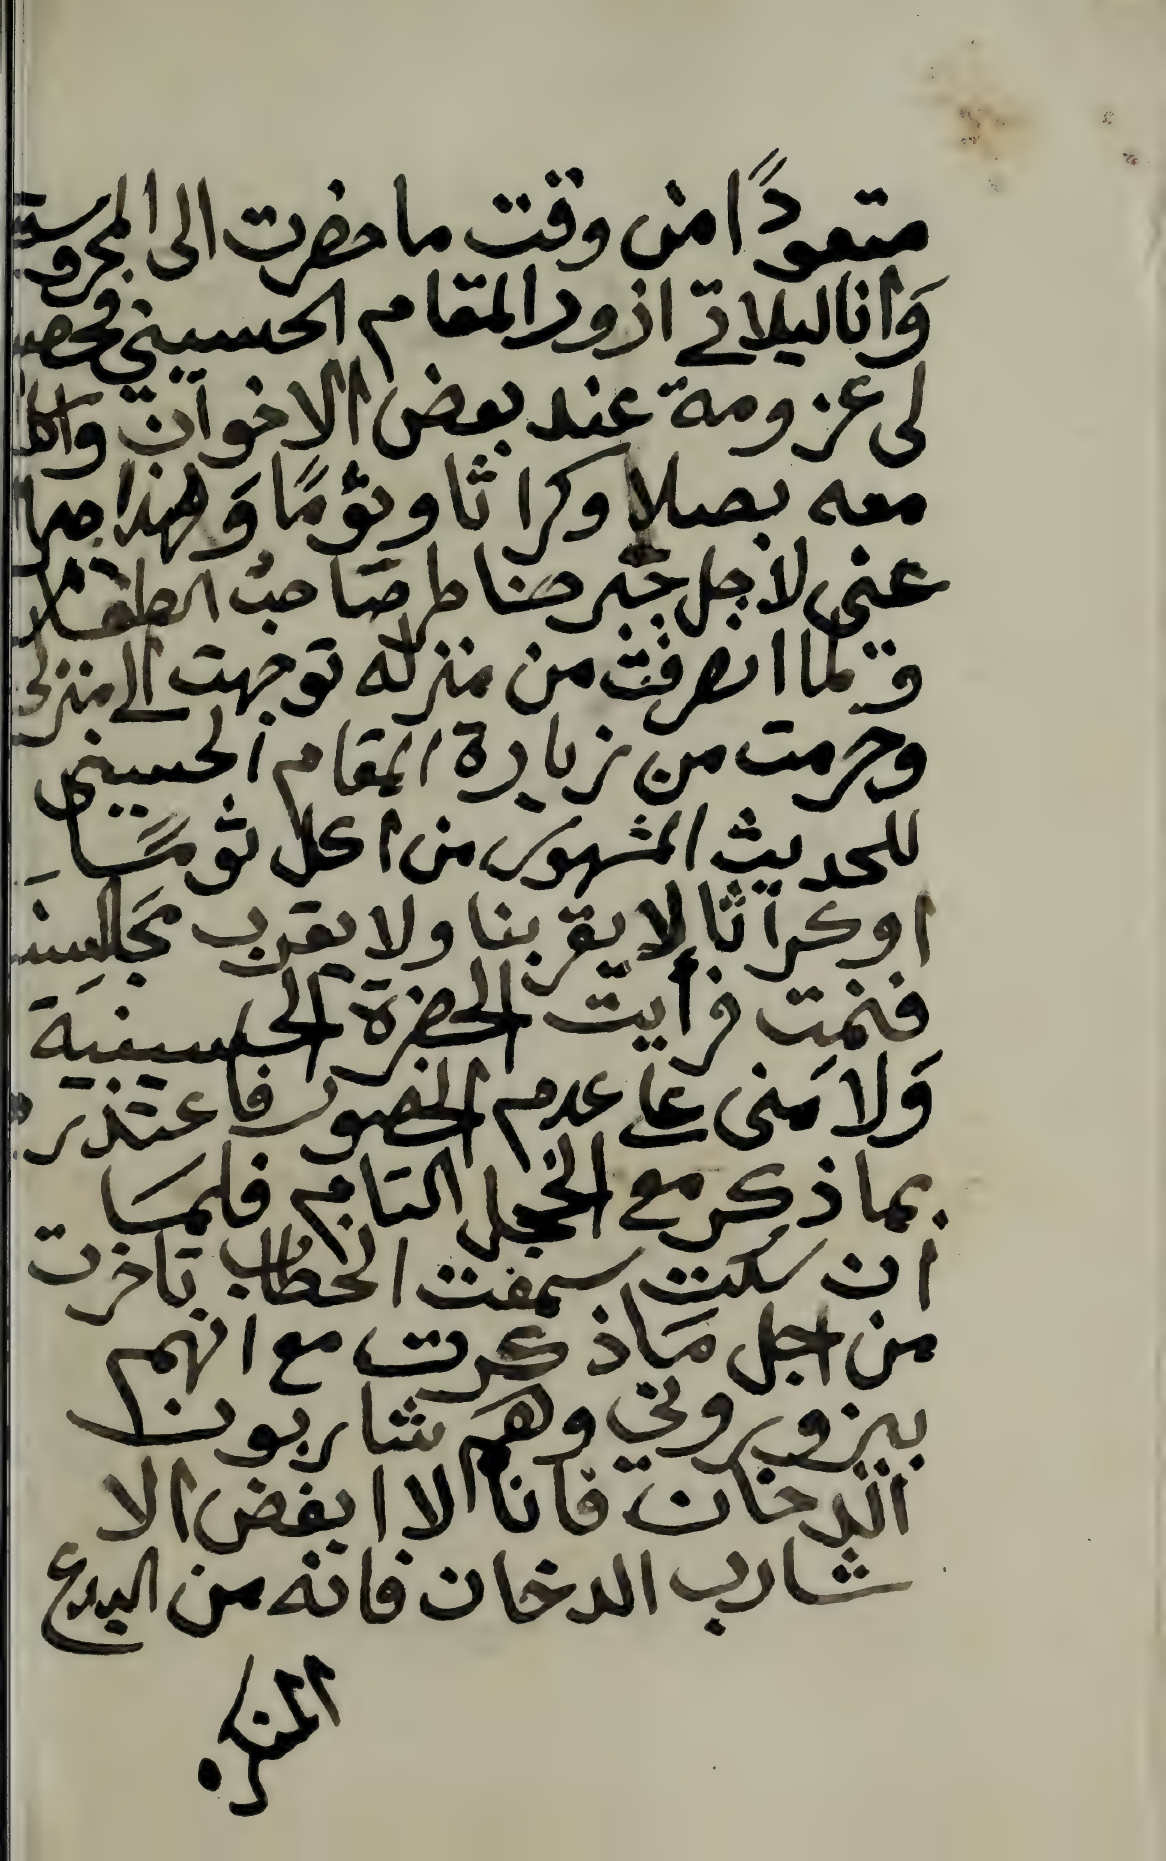 متعودًا من وقت ما حضرت الى المحروسة
وَانا ليلاتي ازور المقام الحسيني فحصل
لى عزومة عند بعض الاخوان واكلت
معه بصلا وكراثا وثومًا وَهذا
عنى لاجل جبر خاطر صَاحب الطعام
ولما انصرفت من منزله توجهت الى منزلى
وحرمت من زيارة المقام الحسينى
للحديث المشهور من اكل ثومًا
او كراثا لا يقربنا ولا يقرب مجَالسنا
فنمت فرأيت الحضرة الحسينية
وَلامَنى على عدم الحضور فاعتذر
بما ذكر مع الخجل التام فلمَا
ان سكت سمعت الخطاب تاخرت
من اجل مَا ذكرت مع انهم
بيزوروني وهم شاربون
الدخان فانا لا ابغض الا
شارب الدخان فانه من البدع
المنكر